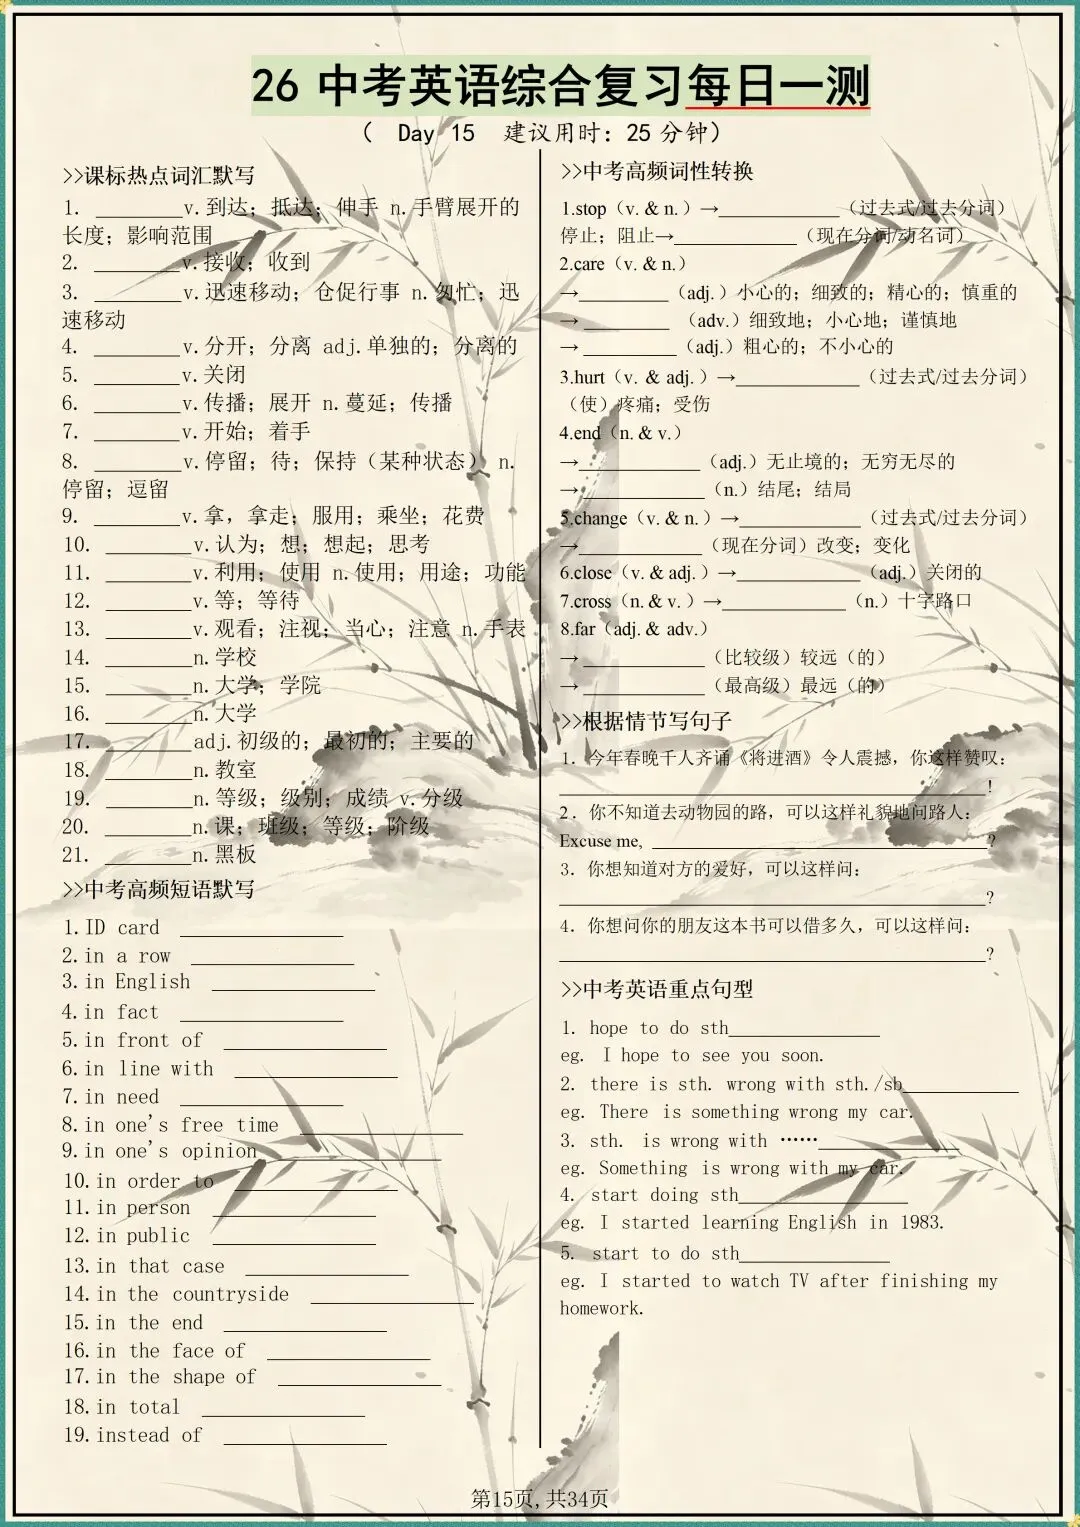 26 中考英语综合复习每日一测
（ Day 15 建议用时：25 分钟）
>>课标热点词汇默写
1. ________v.到达；抵达；伸手 n.手臂展开的
长度；影响范围
2. ________v.接收；收到
3. ________v.迅速移动；仓促行事 n.匆忙；迅
速移动
4. ________v.分开；分离 adj.单独的；分离的
5. ________v.关闭
6. ________v.传播；展开 n.蔓延；传播
7. ________v.开始；着手
8. ________v.停留；待；保持（某种状态） n.
停留；逗留
9. ________v.拿，拿走；服用；乘坐；花费
10. ________v.认为；想；想起；思考
11. ________v.利用；使用 n.使用；用途；功能
12. ________v.等；等待
13. ________v.观看；注视；当心；注意 n.手表
14. ________n.学校
15. ________n.大学；学院
16. ________n.大学
17. ________adj.初级的；最初的；主要的
18. ________n.教室
19. ________n.等级；级别；成绩 v.分级
20. ________n.课；班级；等级；阶级
21. ________n.黑板
>>中考高频短语默写
1.ID card _______________
2.in a row _______________
3.in English _______________
4.in fact _______________
5.in front of _______________
6.in line with _______________
7.in need _______________
8.in one's free time _______________
9.in one's opinion_________________
10.in order to _______________
11.in person _______________
12.in public _______________
13.in that case _______________
14.in the countryside _______________
15.in the end _______________
16.in the face of _______________
17.in the shape of _______________
18.in total _______________
19.instead of _______________
>>中考高频词性转换
1.stop（v. & n.）→____________（过去式/过去分词）
停止；阻止→____________（现在分词/动名词）
2.care（v. & n.）
→_________（adj.）小心的；细致的；精心的；慎重的
→_________ （adv.）细致地；小心地；谨慎地
→_________（adj.）粗心的；不小心的
3.hurt（v. & adj.）→____________（过去式/过去分词）
（使）疼痛；受伤
4.end（n. & v.）
→____________（adj.）无止境的；无穷无尽的
→____________（n.）结尾；结局
5.change（v. & n.）→____________（过去式/过去分词）
→____________（现在分词）改变；变化
6.close（v. & adj.）→____________（adj.）关闭的
7.cross（n. & v.）→____________（n.）十字路口
8.far（adj. & adv.）
→____________（比较级）较远（的）
→____________（最高级）最远（的）
>>根据情节写句子
1．今年春晚千人齐诵《将进酒》令人震撼，你这样赞叹：
__________________________________________!
2．你不知道去动物园的路，可以这样礼貌地问路人：
Excuse me, _________________________________?
3．你想知道对方的爱好，可以这样问：
__________________________________________?
4．你想问你的朋友这本书可以借多久，可以这样问：
__________________________________________?
>>中考英语重点句型
1. hope to do sth______________
eg. I hope to see you soon.
2. there is sth. wrong with sth./sb___________
eg. There is something wrong my car.
3. sth. is wrong with ……_____________
eg. Something is wrong with my car.
4. start doing sth________________
eg. I started learning English in 1983.
5. start to do sth______________
eg. I started to watch TV after finishing my
homework.
第15页,共34页